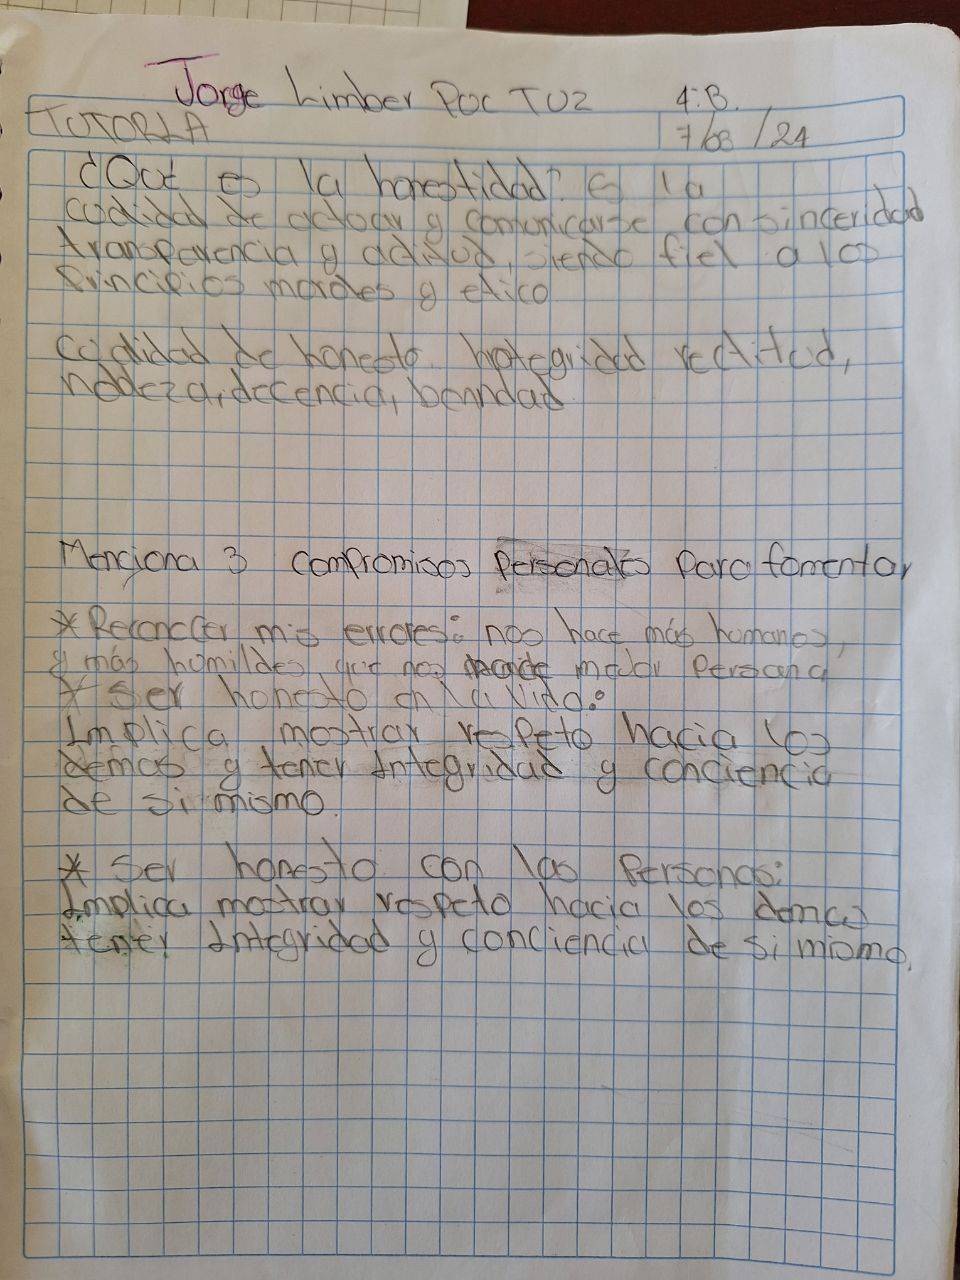 Jorge Limber Poc TUZ 4:B.
TUTORIA 7/03/24
¿Qué es la honestidad? es la
calidad de actuar y comunicarse con sinceridad
transparencia y actitud, siendo fiel a los
Principios morales y etico
calidad de honesto. Integridad rectitud,
nobleza, decencia, bondad
Menciona 3 compromisos Personales Para fomentar
* Reconocer mis errores: nos hace más humanos,
y más humildes que nos hace mejor Persona
* Ser honesto en la vida:
Implica mostrar respeto hacia los
demas y tener Integridad y conciencia
de si mismo.
* Ser honesto con las Personas:
Implica mostrar respeto hacia los demas
tener Integridad y conciencia de si mismo.